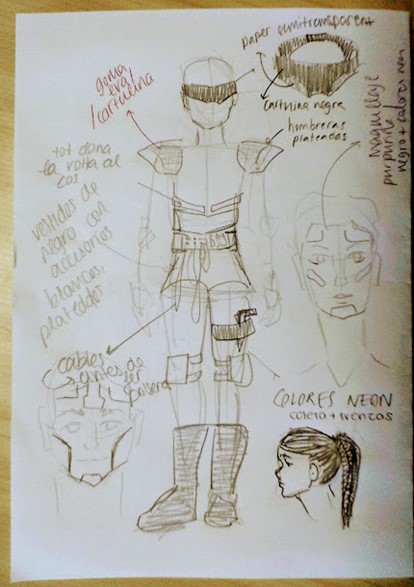 paper semitransparent
goma
eva
/cartulina
cartulina negra
hombreras
plateadas
maquillaje
purpurina
negro + colores neon
tot dona
la volta al
cos
vestidos de
negro con
accesorios
blancos,
plateados
cables
antes de
ser
pulsera
COLORES NEON
coleta + trenzas